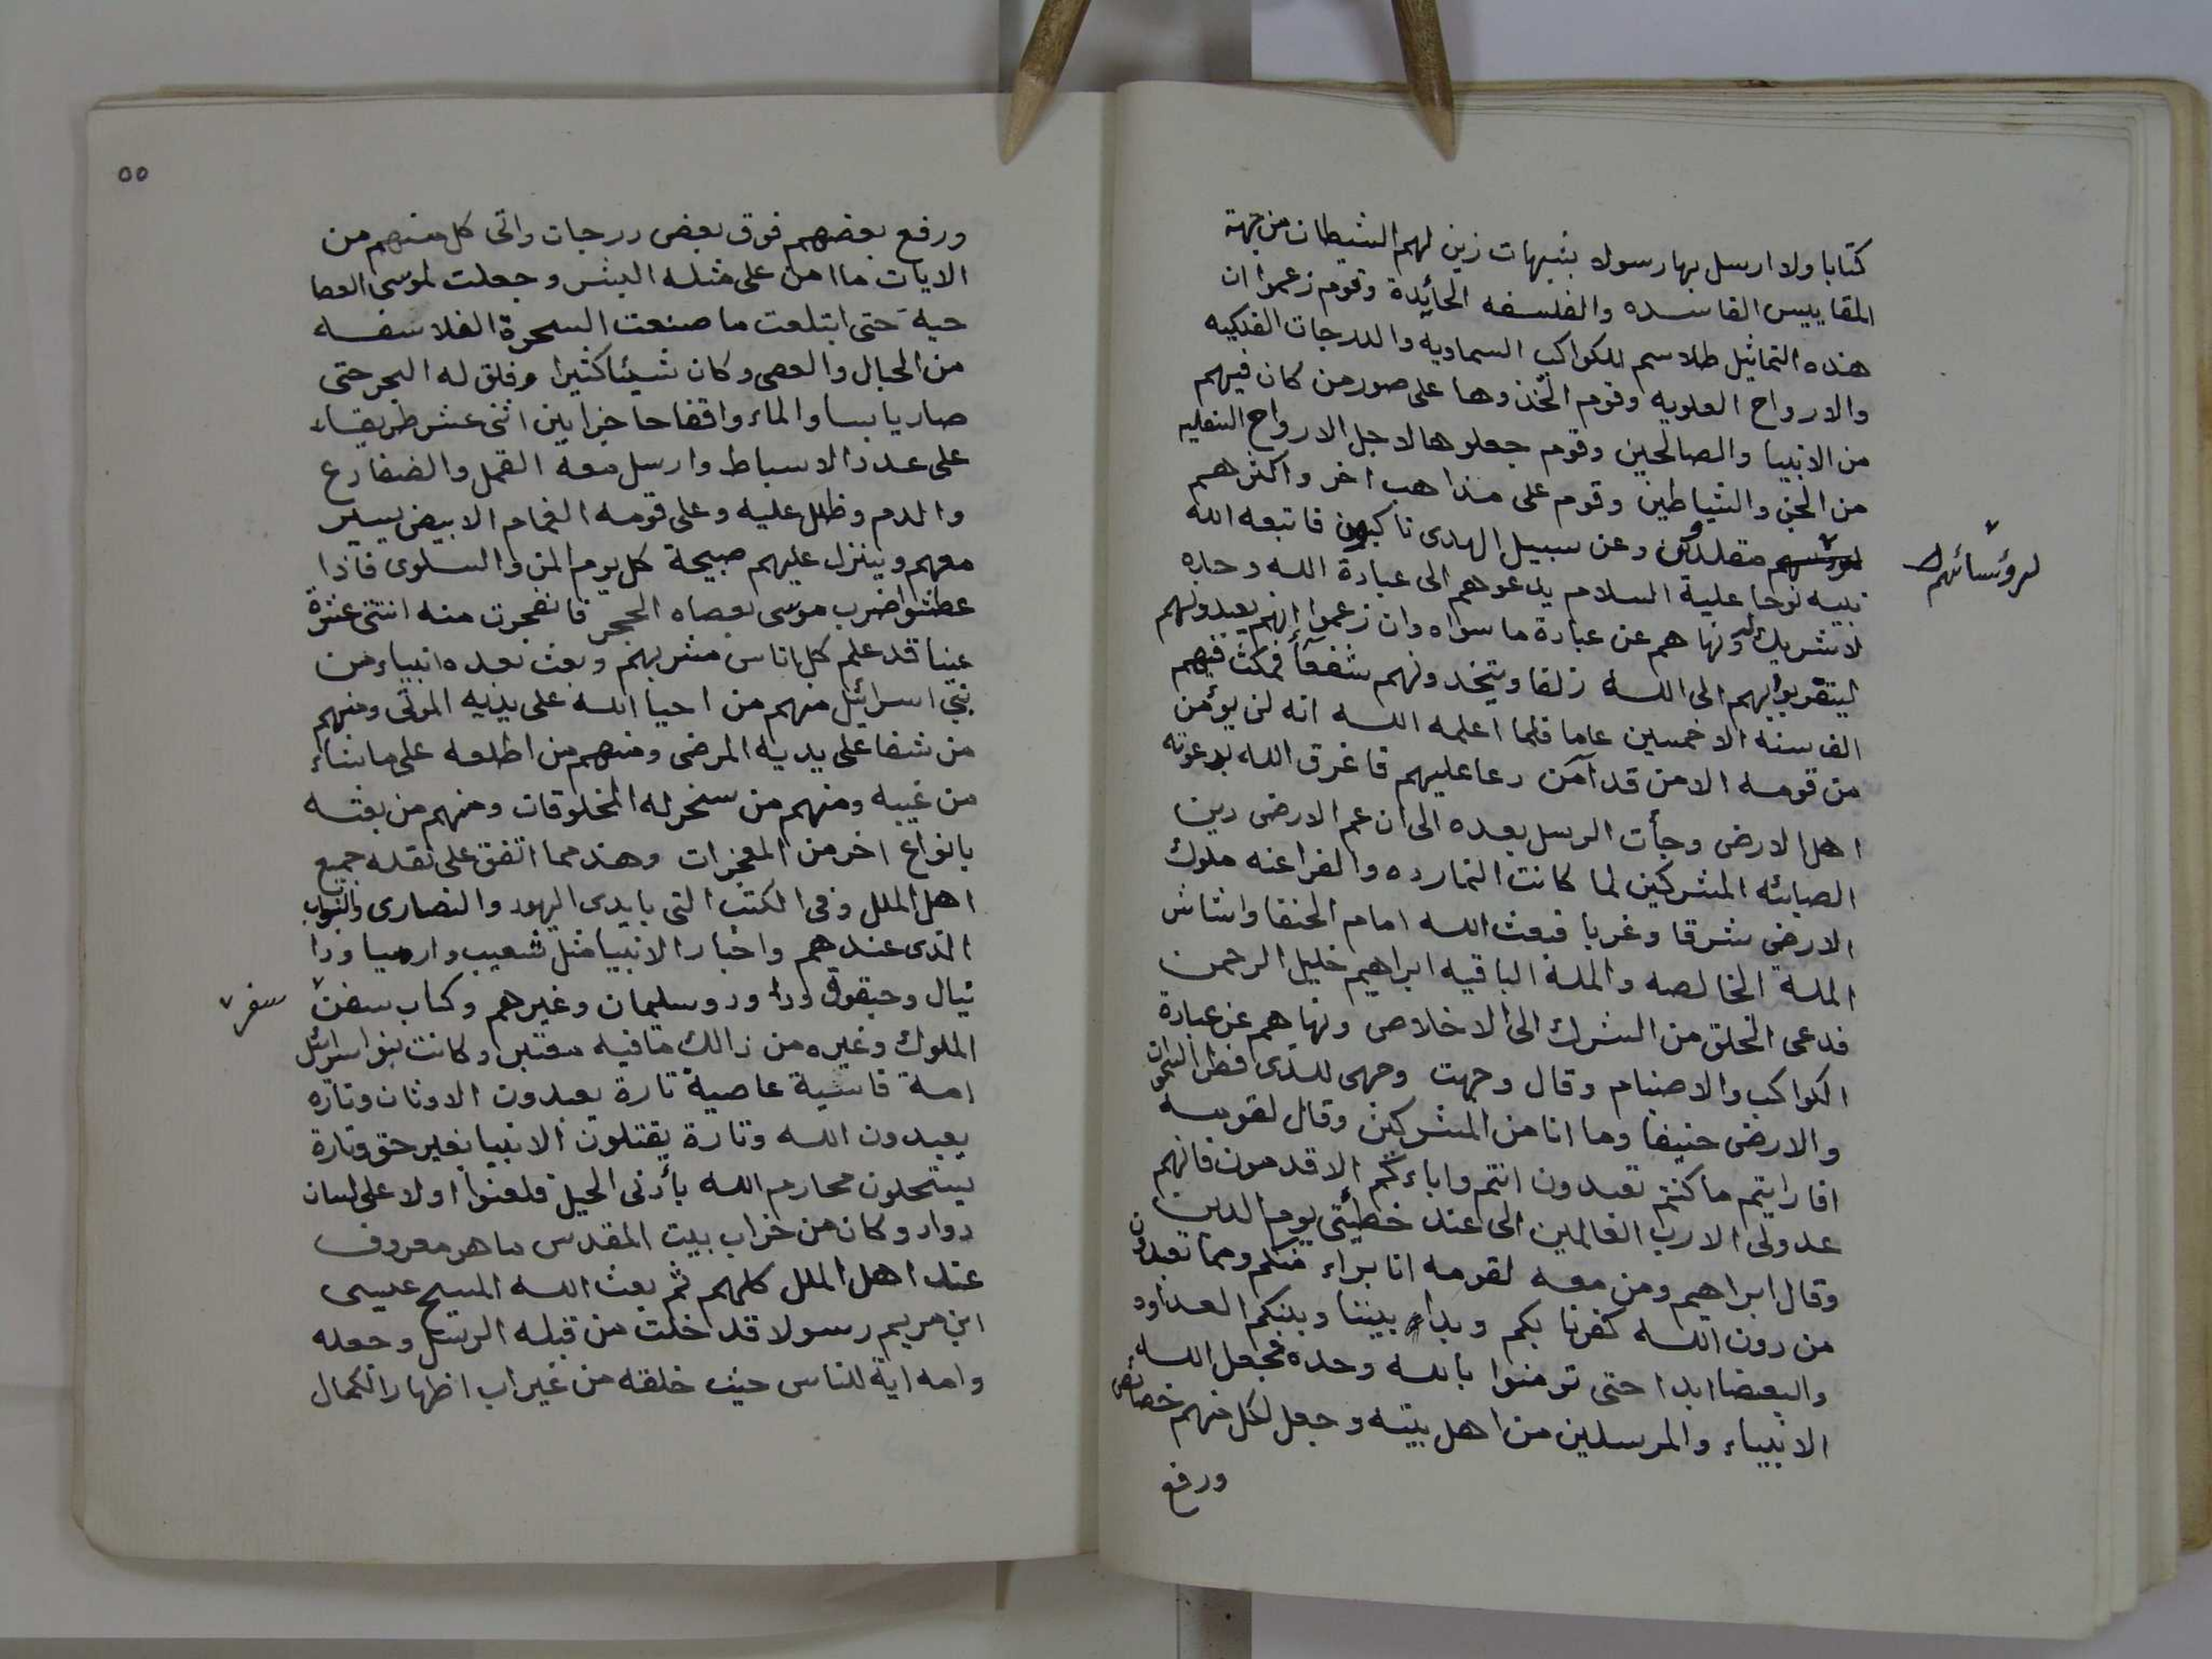 كتابا ولا ارسل بها رسولا بشبهات زين لهم الشيطان من جهة
المقاييس الفاسده والفلسفه الحائدة وقوم زعموا ان
هذه التماثيل طلاسم للكواكب السماويه والدرجات الفلكيه
والارواح العلويه وقوم اتخذوها على صور من كان فيهم
من الانبيا والصالحين وقوم جعلوها لاجل الارواح السفليه
من الجن والشياطين وقوم على مذاهب اخر واكثرهم
لرؤسائهم مقلدون وعن سبيل الهدى ناكبون فابتعه الله
نبيه نوحا علية السلام يدعوهم الى عبادة الله وحده
لا شريك له ونهاهم عن عبادة ما سواه وان زعموا انهم يعبدونهم
ليتقربوا بهم الى الله زلفا ويتخذونهم شفعآأ فمكث فيهم
الف سنه الا خمسين عاما فلما اعلمه الله انه لن يؤمن
من قومه الا من قد آمن دعا عليهم فاغرق الله بدعوته
اهل الارض وجأت الرسل بعده الى ان عم الارض دين
الصبائه المشركين لما كانت النمارده والفراعنه ملوك
الارض شرقا وغربا فبعث الله امام الحنفا واساس
الملة الخالصه والملة الباقيه ابراهيم خليل الرحمن
فدعى الخلق من الشرك الى الاخلاص ونهاهم عن عبادة
الكواكب والاصنام وقال وجهت وجهى للذى فطر السموات
والارض حنيفا وما انا من المشركين وقال لقومه
افارايتم ما كنتم تعبدون انتم واباءكم الاقدمون فانهم
عدولى الا رب العالمين الى عند خطيئتى يوم الدين
وقال ابراهيم ومن معه لقومه انا براء منكم ومما تعبدون
من دون الله كفرنا بكم وبداء بيننا وبينكم العداوه
والبعضا ابدا حتى تومنوا بالله وحده فجعل الله
الانبياء والمرسلين من اهل بيته وجعل لكل منهم خصائص
ورفع
٥٥
ورفع بعضهم فوق بعض درجات واتى كل منهم من
الايات ما امن على مثله البشر وجعلت لموسى العصا
حية حتى ابتلعت ما صنعت السحرة الفلاسفه
من الحبال والعصى وكان شيئا كثيرا وفلق له البحر حتى
صار يابسا والماء واقفا حاجزا بين اثنى عشر طريقاء
على عدد الاسباط وارسل معه القمل والضفادع
والدم وظلل عليه وعلى قومه الغمام الابيض يسير
معهم وينزل عليهم صبيحة كل يوم المن والسلوى فاذا
عطشوا ضرب موسى بعصاه الحجر فانفجرت منه اثنتى عشرة
عينا قد علم كل اناس مشربهم وبعث بعده انبياء من
بنى اسرائيل منهم من احيا الله على يديه الموتى ومنهم
من شفا على يديه المرضى ومنهم من اطلعه على ما شاء
من غيبه ومنهم من سخر له المخلوقات ومنهم من بعثه
بانواع اخر من المعجزات وهذ مما اتفق على نقله جميع
اهل الملل وفى الكتب التى بايدى اليهود والنصارى والنبوات
الذى عندهم واخبار الانبيا مثل شعيب وارميا ودا
نيال وحبقوق وداود وسليمان وغيرهم وكتاب سفر
الملوك وغيره من ذالك ما فيه معتبر وكانت بنو اسرائيل
امة قاسية عاصية تارة يعبدون الاوثان وتاره
يعبدون الله وتارة يقتلون الانبيا بغير حق وتارة
يستحلون محارم الله بأدنى الحيل فلعنوا اولا على لسان
دواد وكان من خراب بيت المقدس ما هو معروف
عند اهل الملل كلهم ثم بعث الله المسيح عيسى
ابن مريم رسولا قد خلت من قبله الرسل وجعله
وامه اية للناس حيث خلقه من غير اب اظهارا لكمال
لرؤسائهم
سفر